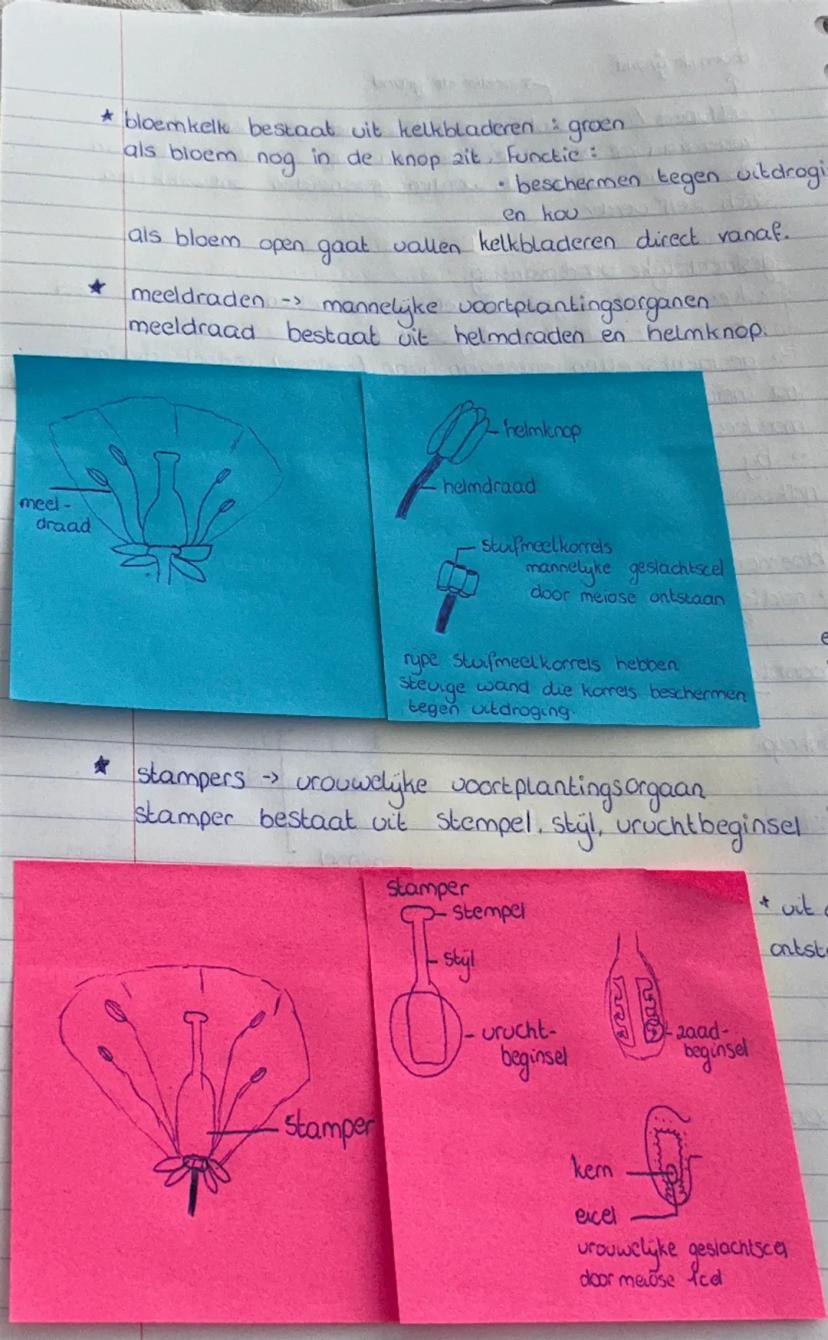 * bloemkelk bestaat uit kelkbladeren : groen
als bloem nog in de knop zit. Functie :
• beschermen tegen uitdrogi
en kou
als bloem open gaat vallen kelkbladeren direct vanaf.
* meeldraden -> mannelijke voortplantingsorganen
meeldraad bestaat uit helmdraden en helmknop.
meel-
draad
helmknop
helmdraad
stuifmeelkorrels
mannelijke geslachtscel
door meiose ontstaan
rijpe stuifmeelkorrels hebben
stevige wand die korrels beschermen
tegen uitdroging.
* stampers -> vrouwelijke voortplantingsorgaan
stamper bestaat uit stempel, stijl, vruchtbeginsel
stamper
stempel
stijl
vrucht-
beginsel
zaad-
beginsel
* uit
ontst
stamper
kern
eicel
vrouwelijke geslachtscel
door meiose